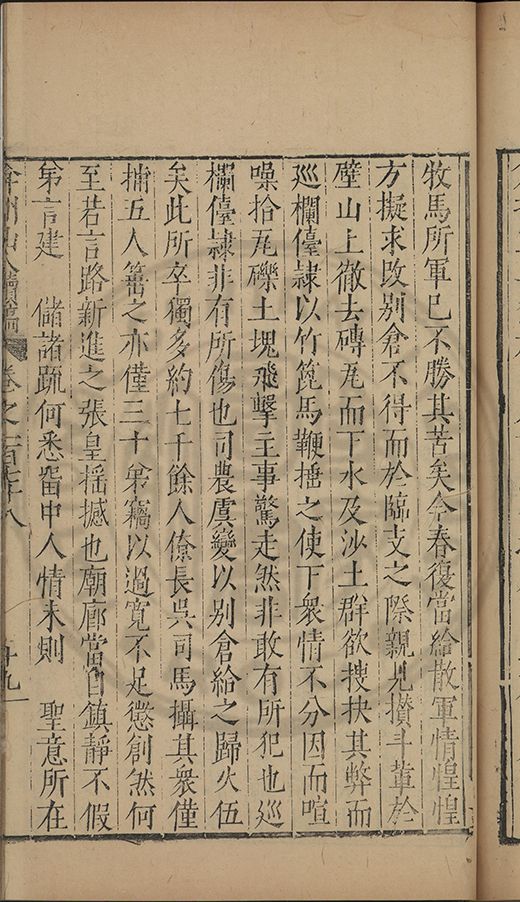 牧馬所軍已不勝其苦矣今春復當給散軍情惶惶
方擬求改别倉不得而於臨支之際親見攢斗輩於
壁山上徹去磚瓦而下水及沙土群欲搜抉其弊而
巡欄儓隷以竹篦馬鞭搖之使下衆情不分因而喧
噪拾瓦礫土塊飛擊主事驚走然非敢有所犯也巡
欄儓隷非有所傷也司農虞變以别倉給之歸火伍
矣此所卒獨多約七千餘人僚長吳司馬攝其衆僅
捕五人箠之亦僅三十弟竊以過寛不足懲創然何
至若言路新進之張皇摇撼也廟廊當自鎮靜不假
弟言建　儲諸䟽何悉畱中人情未則　聖意所在
弇州山人續稿　卷之一百七十八　十九